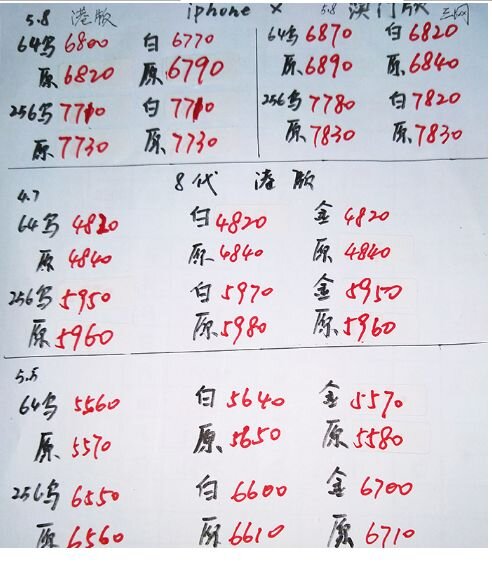 5.8 港版 iphone X 5.8 澳门版 三网
64乌 6800 白 6770 64乌 6870 白 6820
原 6820 原 6790 原 6890 原 6840
256乌 7710 白 7710 256乌 7780 白 7820
原 7730 原 7730 原 7830 原 7830
4.7 8代 港版
64乌 4820 白 4820 金 4820
原 4840 原 4840 原 4840
256乌 5950 白 5970 金 5950
原 5960 原 5980 原 5960
5.5
64乌 5560 白 5640 金 5570
原 5570 原 5650 原 5580
256乌 6550 白 6600 金 6700
原 6560 原 6610 原 6710